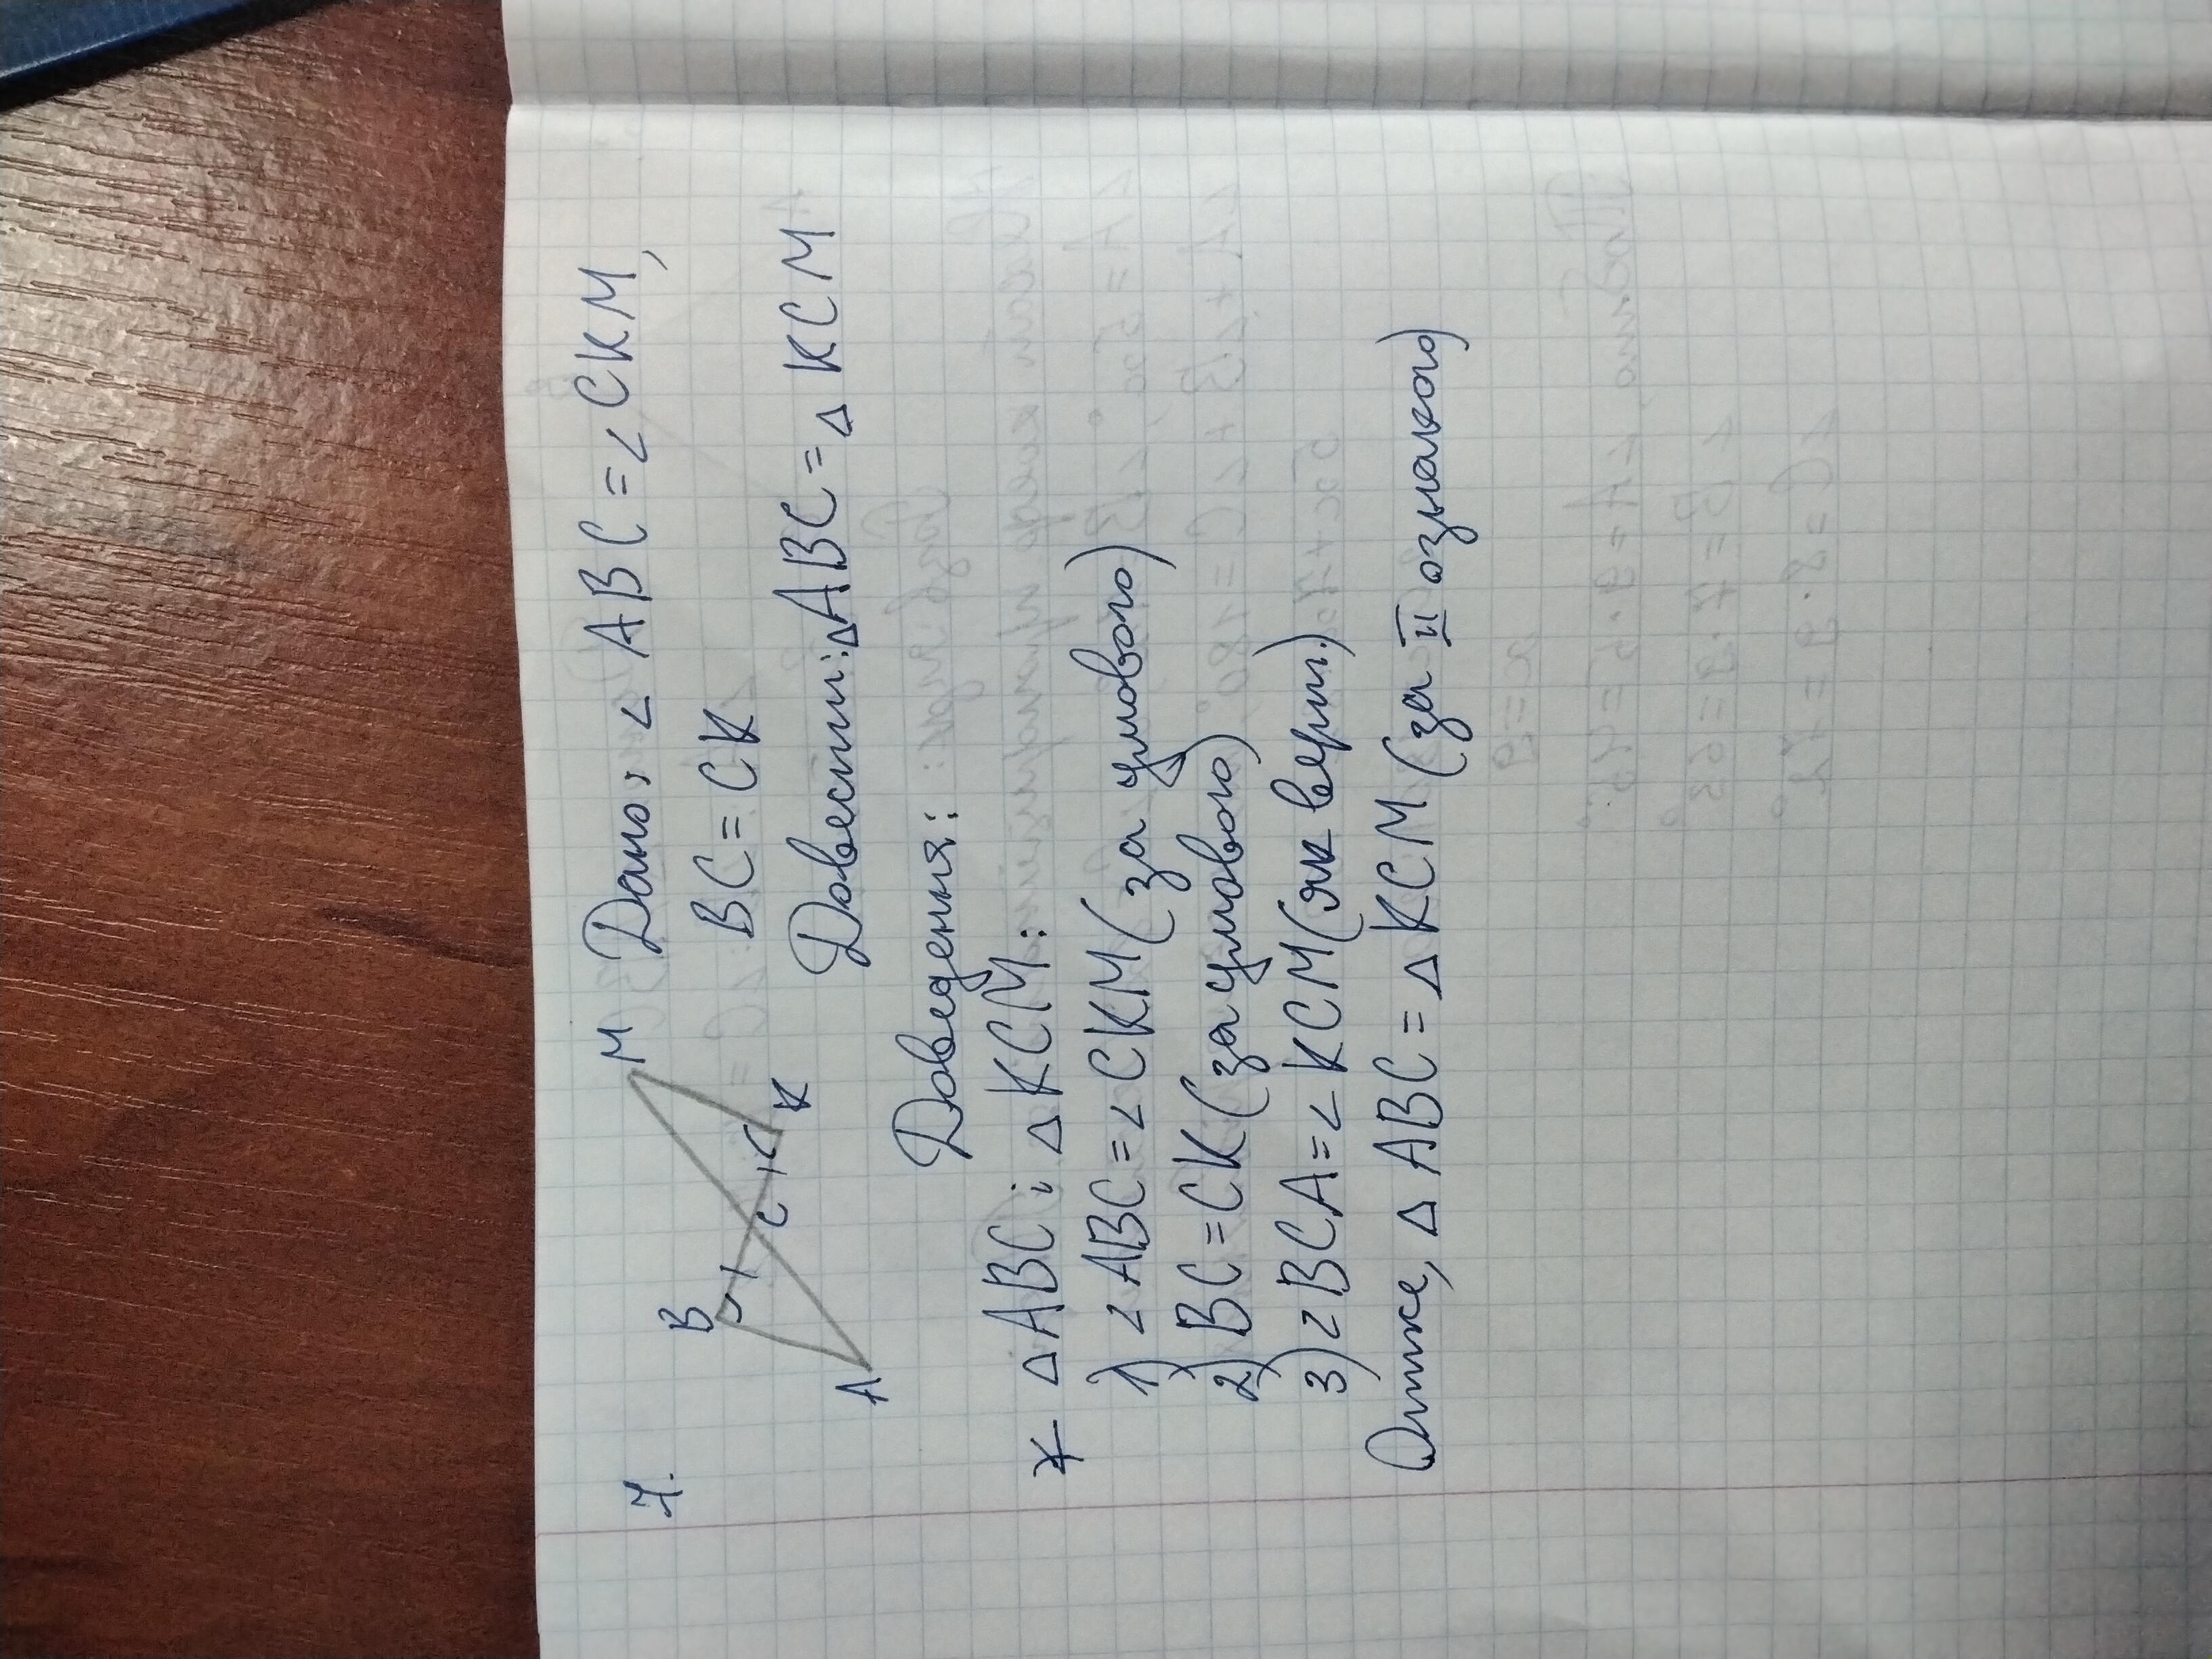 7.
M
B
C
K
A
Дано: ∠ABC = ∠CKM,
BC = CK
Довести: △ABC = △KCM
Доведення:
△ABC і △KCM:
1) ∠ABC = ∠CKM (за умовою)
2) BC = CK (за умовою)
3) ∠BCA = ∠KCM (як верт.)
Отже, △ABC = △KCM (за II ознакою)